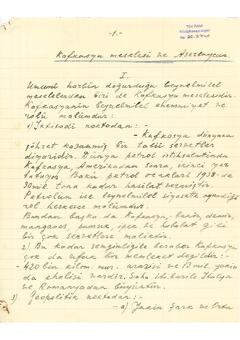 -1-
Kafkasya meselesi ve Azerbaycan.
I.
Umumi harbin doğurduğu beynelmilel
meselelerden biri de Kafkasya meselesidir.
Kafkasyanın beynelmilel ehemmiyet ve
rolü malûmdur:
1) İktisadi noktadan: -
- Kafkasya dünyaca
şöhret kazanmış bir tabii servetler
diyarıdır. Dünya petrol istihsalâtında
Kafkasya, Amerikadan sonra, ikinci yeri
tutuyor. Bakû petrol ocakları 1938-de
30 milk. tona kadar hasılat vermiştir.
Petrolun ise beynelmilel siyasette oynadığı
rol herkesce malûmdur.
Bundan başka da Kafkasya, demir,
manganez, pamuk, ipek ve hububat gibi
bir çok servetlere maliktir.
2) Bu kadar zenginliğile beraber Kafkasya
çok da ufak bir memleket değildir: -
420 bin kilom. mur. arazisi ve 13 mil. yarım
da ehalisi vardır. Saha itibarile İtalya
ve Romanyadan büyüktür.
3) Geopolitik noktadan: -
a) Yakın Şark ve Orta